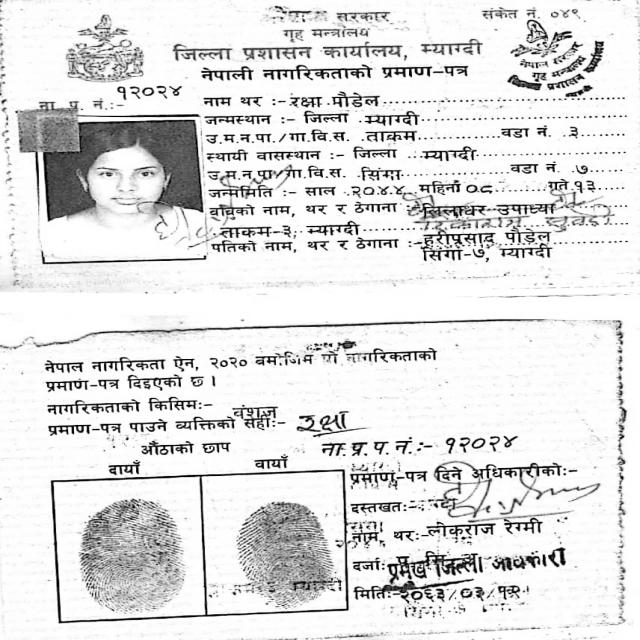 नेपाल सरकार
संकेत नं. ०४९
गृह मन्त्रालय
जिल्ला प्रशासन कार्यालय, म्याग्दी
नेपाली नागरिकताको प्रमाण-पत्र
ना. प्र. नं.:- १२०२४
नाम थर :- रक्षा पौडेल
जन्मस्थान :- जिल्ला म्याग्दी
उ.म.न.पा./गा.वि.स. ताकम वडा नं. ३
स्थायी वासस्थान :- जिल्ला म्याग्दी
उ.म.न.पा./गा.वि.स. सिंगा वडा नं. ७
जन्ममिति :- साल २०४४ महिना ०८ गते १३
बाबुको नाम, थर र ठेगाना लिलाधर उपाध्या
ताकम-३, म्याग्दी
पतिको नाम, थर र ठेगाना:- हरीप्रसाद पौडेल
सिंगा-७, म्याग्दी
नेपाल सरकार
गृह मन्त्रालय
जिल्ला प्रशासन कार्यालय
नेपाल नागरिकता ऐन, २०२० बमोजिम यो नागरिकताको
प्रमाण-पत्र दिइएको छ ।
नागरिकताको किसिम:- वंशज
प्रमाण-पत्र पाउने व्यक्तिको सही:- रक्षा
औंठाको छाप
ना.प्र.प.नं.:- १२०२४
दायाँ बायाँ
प्रमाण-पत्र दिने अधिकारीको:-
दस्तखत:-
नाम, थर:- लोकराज रेग्मी
दर्जा: प्रमुख जिल्ला अधिकारी
मिति: २०६३/०३/१२